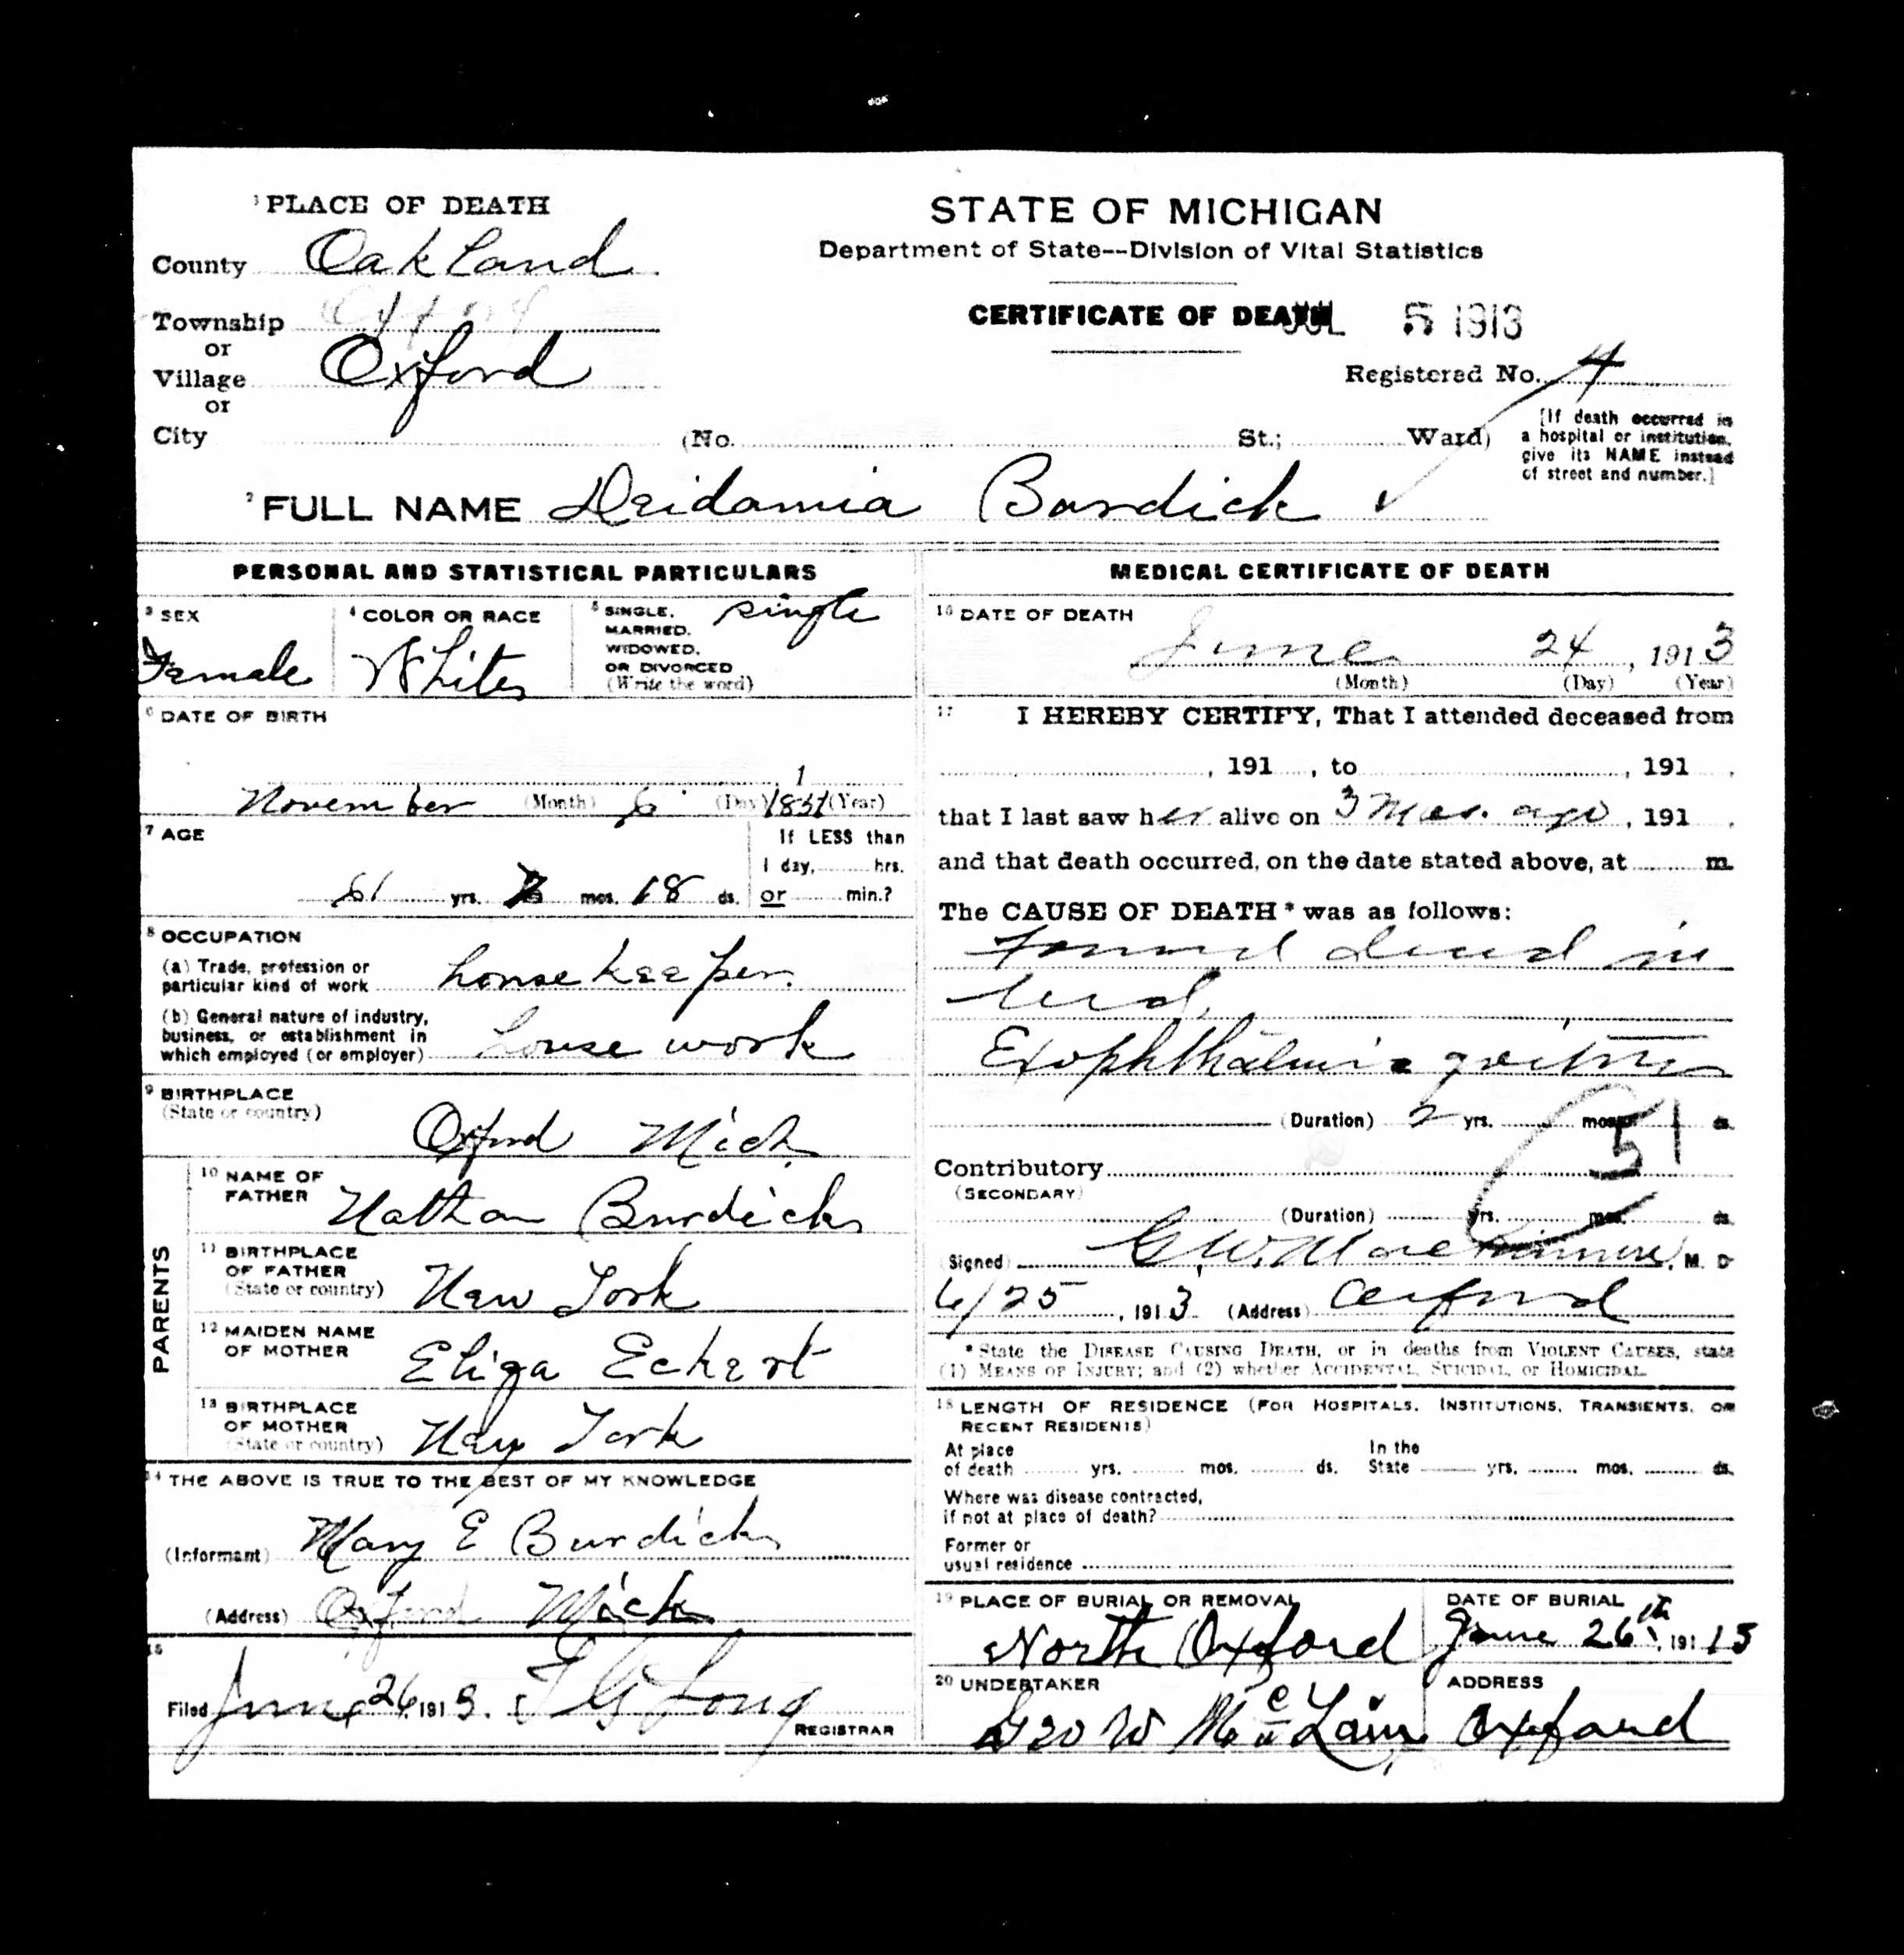 1 PLACE OF DEATH
County Oakland
Township
or
Village Oxford
or
City (No. St.; Ward)
STATE OF MICHIGAN
Department of State--Division of Vital Statistics
CERTIFICATE OF DEATH
JUL 5 1913
Registered No. 4
[If death occurred in
a hospital or institution,
give its NAME instead
of street and number.]
2 FULL NAME Deidamia Burdick
PERSONAL AND STATISTICAL PARTICULARS
3 SEX
Female
4 COLOR OR RACE
White
5 SINGLE, MARRIED, WIDOWED, OR DIVORCED (Write the word) single
6 DATE OF BIRTH
November (Month) 6 (Day) 1851 (Year)
1
7 AGE
61 yrs. mos. 18 ds.
If LESS than
1 day, hrs.
or min.?
8 OCCUPATION
(a) Trade, profession or
particular kind of work housekeeper.
(b) General nature of industry,
business, or establishment in
which employed (or employer) house work
9 BIRTHPLACE
(State or country)
Oxford Mich
PARENTS
10 NAME OF
FATHER Nathan Burdick
11 BIRTHPLACE
OF FATHER
(State or country) New York
12 MAIDEN NAME
OF MOTHER Eliza Eckert
13 BIRTHPLACE
OF MOTHER
(State or country) New York
14 THE ABOVE IS TRUE TO THE BEST OF MY KNOWLEDGE
(Informant) Mary E Burdick
(Address) Oxford Mich
15
Filed June 26, 1913. Long
REGISTRAR
MEDICAL CERTIFICATE OF DEATH
16 DATE OF DEATH
June 24, 1913
(Month) (Day) (Year)
17 I HEREBY CERTIFY, That I attended deceased from
, 191 , to , 191 ,
that I last saw her alive on 3 Mos. ago, 191 ,
and that death occurred, on the date stated above, at m.
The CAUSE OF DEATH* was as follows:
Found dead in
bed,
Exophthalmic goitre
(Duration) 2 yrs. mos. ds.
51
Contributory
(SECONDARY)
(Duration) yrs. mos. ds.
(Signed) G. W. , M. D.
6/25, 1913 (Address) Oxford
*State the DISEASE CAUSING DEATH, or in deaths from VIOLENT CAUSES, state
(1) MEANS OF INJURY; and (2) whether ACCIDENTAL, SUICIDAL, or HOMICIDAL.
18 LENGTH OF RESIDENCE (FOR HOSPITALS, INSTITUTIONS, TRANSIENTS, OR
RECENT RESIDENTS)
At place
of death yrs. mos. ds.
In the
State yrs. mos. ds.
Where was disease contracted,
if not at place of death?
Former or
usual residence
19 PLACE OF BURIAL OR REMOVAL
North Oxford
DATE OF BURIAL
June 26th, 191 13
20 UNDERTAKER
Geo W McLain
ADDRESS
Oxford